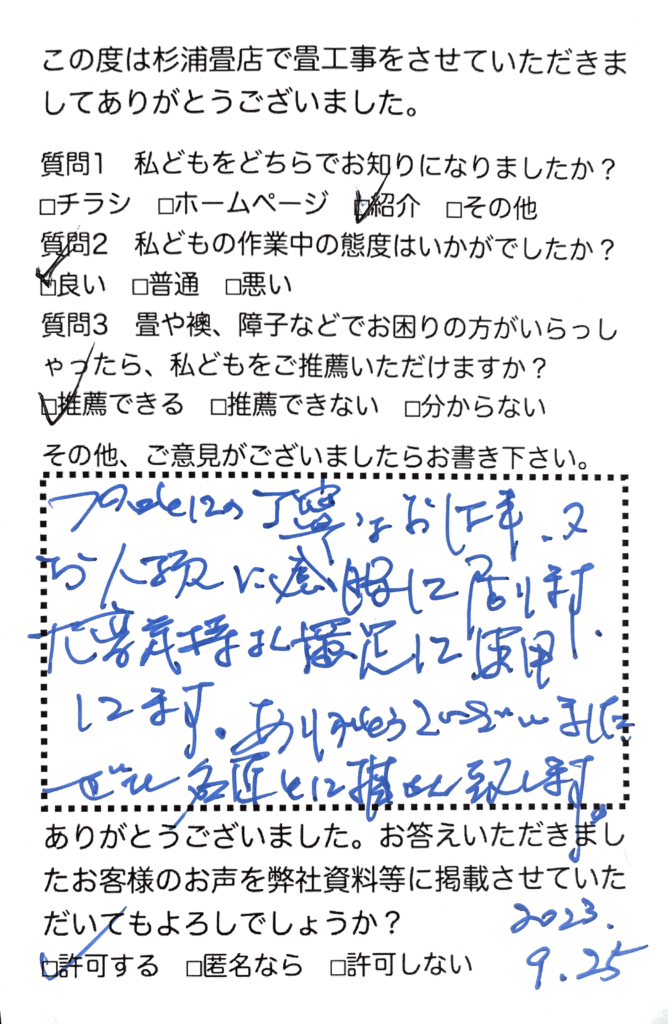 この度は杉浦畳店で畳工事をさせていただきま
してありがとうございました。
質問1　私どもをどちらでお知りになりましたか？
□チラシ　□ホームページ　☑紹介　□その他
質問2　私どもの作業中の態度はいかがでしたか？
☑良い　□普通　□悪い
質問3　畳や襖、障子などでお困りの方がいらっし
ゃったら、私どもをご推薦いただけますか？
☑推薦できる　□推薦できない　□分からない
その他、ご意見がございましたらお書き下さい。
丁寧なお仕事、又
お人柄に感服して居ります
大変気持よく満足して使用
してます。ありがとうございました
ぜひ 致します。
ありがとうございました。お答えいただきまし
たお客様のお声を弊社資料等に掲載させていた
だいてもよろしでしょうか？
2023.
☑許可する　□匿名なら　□許可しない
9.25